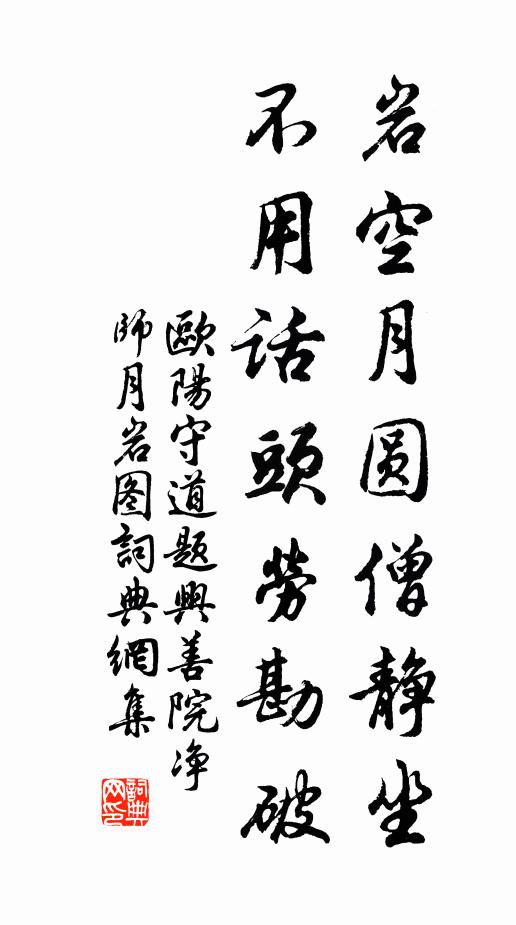 岩空月圆僧静坐
不用話頭勞勘破
歐陽守道题興善院净
師月岩图詞典網集
詞典网印